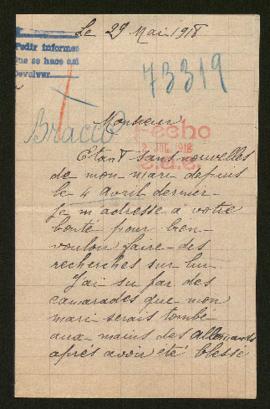 Le 29 Mai 1918
Pedir informes
que se hace así
devolver
73319
Bracco
Monsieur
Fecho
JUL. 1918
Etant sans nouvelles
de mon mari depuis
le 4 avril dernier
Je m adresse à votre
bonté pour bien
vouloir faire des
recherches sur lui
J'ai su par des
camarades que mon
mari serais tombé
aux mains des allemands
aprés avoir été blessé